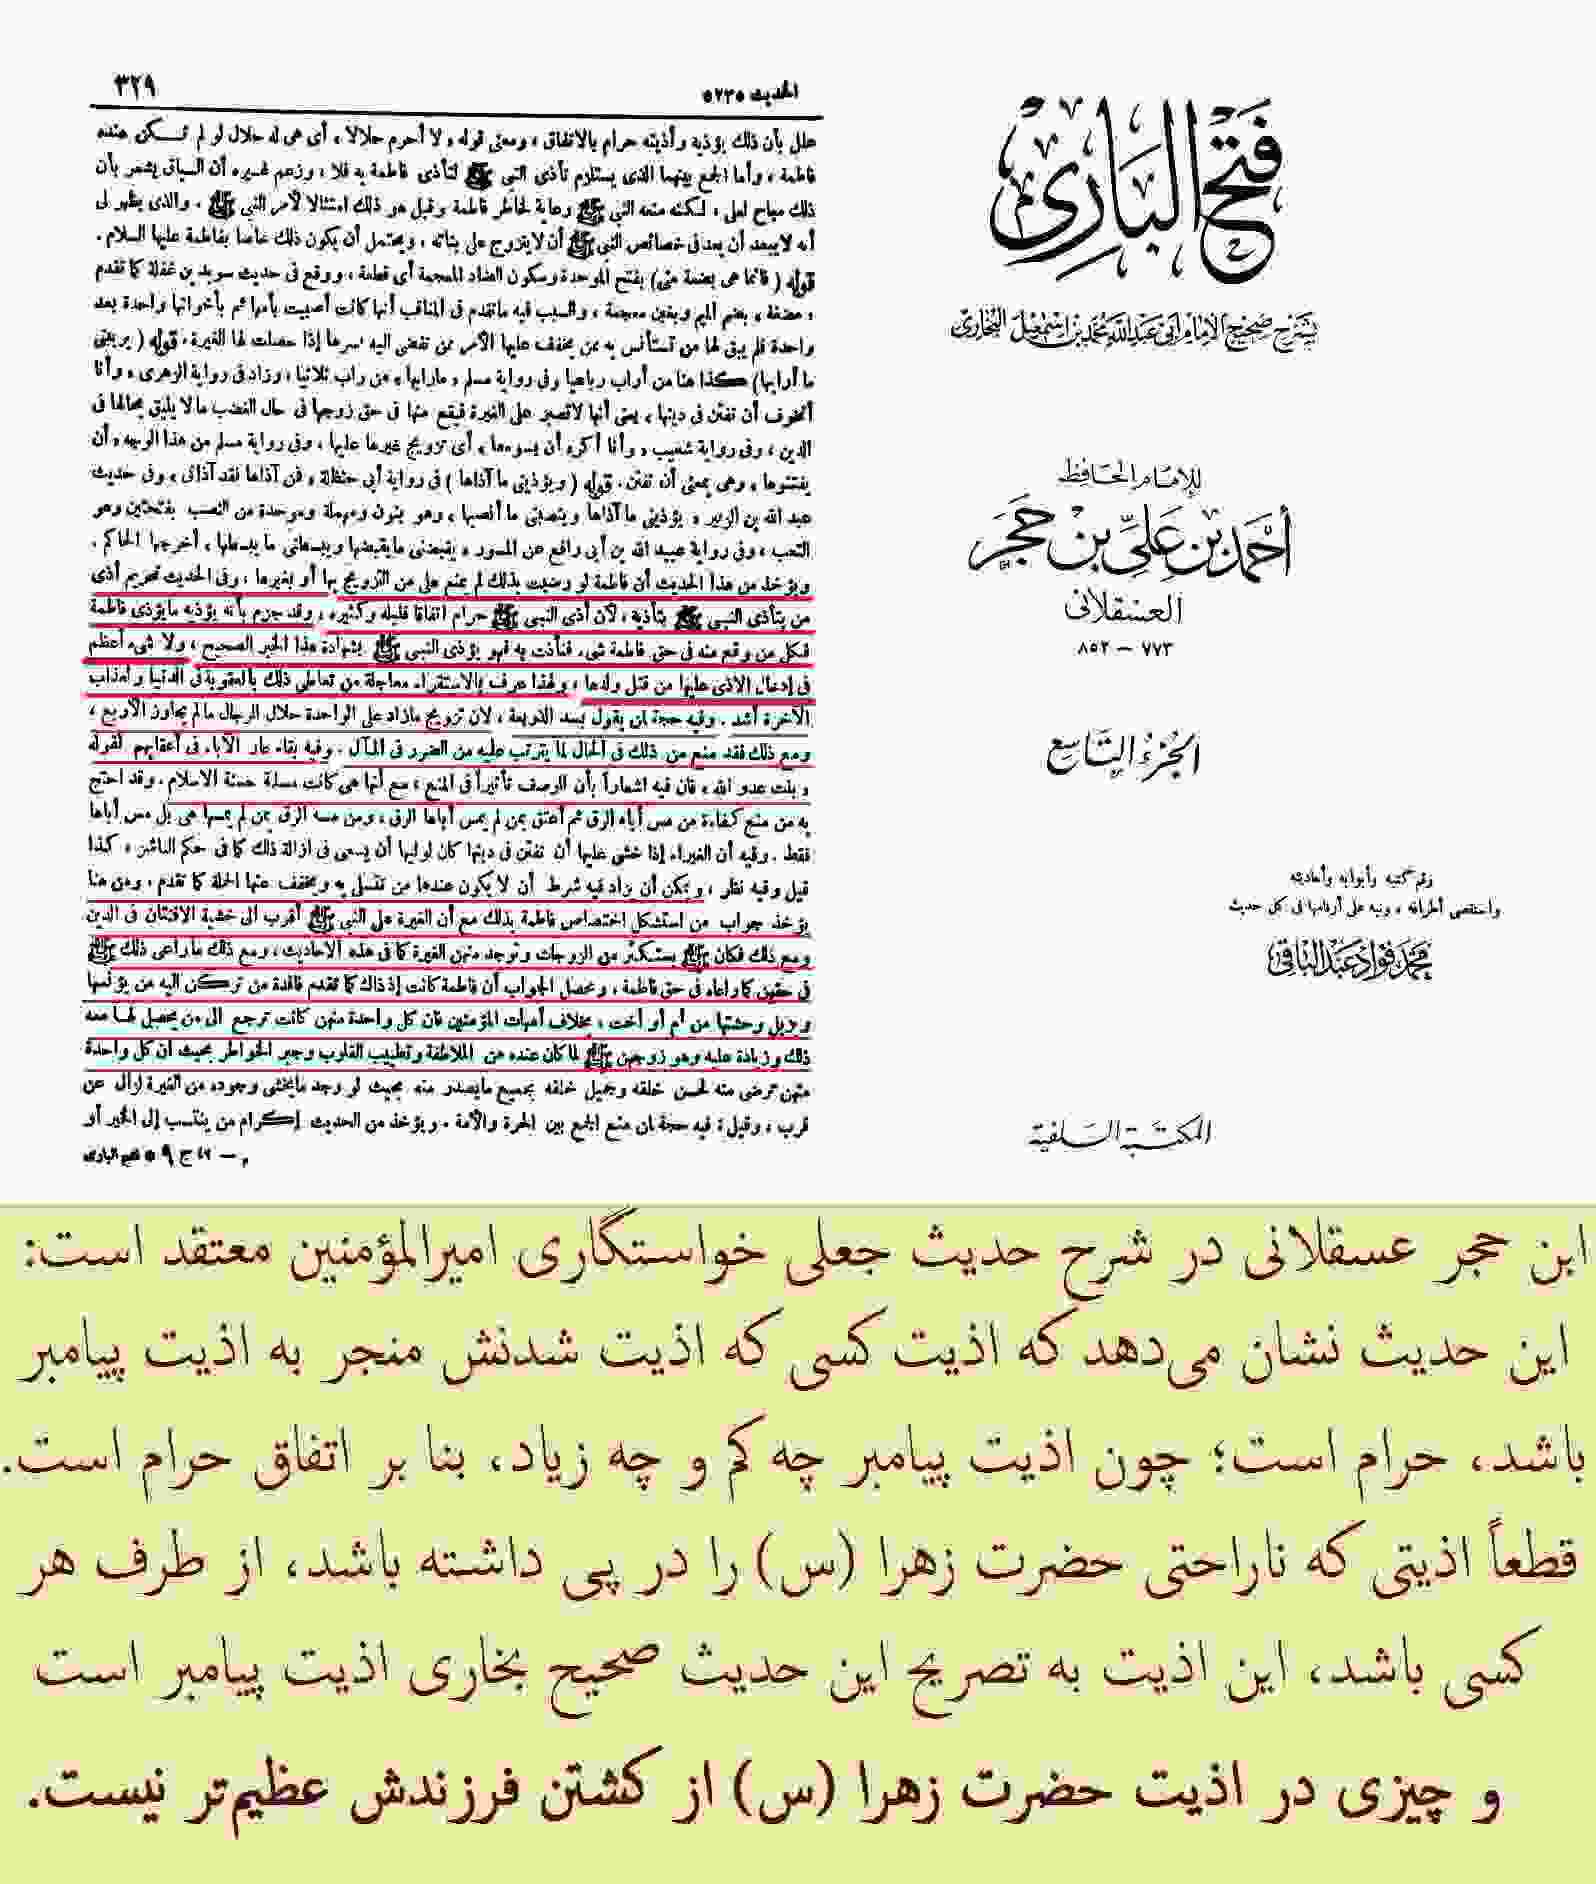 فتح الباري
بشرح صحيح الإمام أبي عبد الله محمد بن إسمعيل البخاري
للإمام الحافظ
أحمد بن علي بن حجر
العسقلاني
٧٧٣ – ٨٥٢
الجزء التاسع
رقم كتبه وأبوابه وأحاديثه
واستقصى أطرافه ، ونبه على أرقامها في كل حديث
محمد فؤاد عبد الباقي
المكتبة السلفية
الحديث ٥٢٣٠ ٣٢٩
علل بأن ذلك يؤذيه وأذيته حرام بالاتفاق ، ومعنى قوله ، ولا أحرم حلالا ، أى هى له حلال لو لم تكن عنده
فاطمة ، وأما الجمع بينهما الذى يستلزم تأذى النبى ﷺ لتأذى فاطمة به فلا ، وزعم غيره أن السياق يشعر بأن
ذلك مباح لعلى ، لكنه منعه النبى ﷺ رعاية لخاطر فاطمة وقبل هو ذلك امتثالا لأمر النبى ﷺ . والذى يظهر لى
أنه لا يبعد أن يعد فى خصائص النبى ﷺ أن لا يتزوج على بناته ، ويحتمل أن يكون ذلك خاصا بفاطمة عليها السلام .
قوله ( فانما هى بضعة منى ) بفتح الموحدة وسكون الضاد المعجمة أى قطعة ، ووقع فى حديث سويد بن غفلة كما تقدم
، مضغة ، بضم الميم وبغين معجمة ، والسبب فيه ما تقدم فى المناقب أنها كانت أصيبت بأمها ثم بأخواتها واحدة بعد
واحدة فلم يبق لها من تستأنس به ممن يخفف عليها الأمر ممن تفضى اليه بسرها إذا حصلت لها الغيرة . قوله ( يريبنى
ما أرابها ) كذا هنا من أراب رباعيا وفى رواية مسلم ، ما رابها ، من راب ثلاثيا ، وزاد فى رواية الزهرى ، وأنا
أتخوف أن تفتن فى دينها ، يعنى أنها لا تصبر على الغيرة فيقع منها فى حق زوجها فى حال الغضب ما لا يليق بحالها فى
الدين ، وفى رواية شعيب ، وأنا أكره أن يسوءها ، أى تزويج غيرها عليها ، وفى رواية مسلم من هذا الوجه ، أن
يفتنوها ، وهى بمعنى أن تفتن . قوله ( ويؤذينى ما آذاها ) فى رواية أبى حنظلة ، فمن آذاها فقد آذانى ، وفى حديث
عبد الله بن الزبير ، يؤذينى ما آذاها وينصبنى ما أنصبها ، وهو بنون ومهملة وموحدة من النصب بفتحتين وهو
التعب ، وفى رواية عبيد الله بن أبى رافع عن المسور ، يقبضنى ما يقبضها ويبسطنى ما يبسطها ، أخرجها الحاكم .
ويؤخذ من هذا الحديث أن فاطمة لو رضيت بذلك لم يمنع على من التزويج بها أو بغيرها ، وفى الحديث تحريم أذى
من يتأذى النبى ﷺ بتأذيه ، لأن أذى النبى ﷺ حرام اتفاقا قليله وكثيره ، وقد جزم بأنه يؤذيه ما يؤذى فاطمة
فكل من وقع منه فى حق فاطمة شىء فتأذت به فهو يؤذى النبى ﷺ بشهادة هذا الخبر الصحيح ، ولا شىء أعظم
فى إدخال الأذى عليها من قتل ولدها ، ولهذا عرف بالاستقراء معاجلة من تعاطى ذلك بالعقوبة فى الدنيا ولعذاب
الآخرة أشد . وفيه حجة لمن يقول بسد الذريعة ، لأن تزويج ما زاد على الواحدة حلال للرجال ما لم يجاوز الأربع ،
ومع ذلك فقد منع من ذلك فى الحال لما يترتب عليه من الضرر فى المآل . وفيه بقاء عار الآباء فى أعقابهم لقوله
، بنت عدو الله ، فان فيه اشعارا بأن الوصف تأثيرا فى المنع ، مع أنها هى كانت مسلمة حسنة الاسلام . وقد احتج
به من منع كفاءة من مس أباه الرق ثم أعتق بمن لم يمس أباها الرق ، ومن مسه الرق بمن لم يمسها هى بل مس أباها
فقط . وفيه أن الغيراء إذا خشى عليها أن تفتن فى دينها كان لوليها أن يسعى فى ازالة ذلك كما فى حكم الناشز ، كذا
قيل وفيه نظر ، ويمكن أن يزاد فيه شرط أن لا يكون عندها من تتسلى به ويخفف عنها الحملة كما تقدم ، ومن هنا
يؤخذ جواب من استشكل اختصاص فاطمة بذلك مع أن الغيرة على النبى ﷺ أقرب الى خشية الافتتان فى الدين
ومع ذلك فكان ﷺ يستكثر من الزوجات وتوجد منهن الغيرة كما فى هذه الأحاديث ، ومع ذلك ما راعى ذلك ﷺ
فى حقهن كما راعاه فى حق فاطمة ، ومحصل الجواب أن فاطمة كانت إذ ذاك كما تقدم فاقدة من تركن اليه من يؤنسها
ويزيل وحشتها من أم أو أخت ، بخلاف أمهات المؤمنين فان كل واحدة منهن كانت ترجع الى من يحصل لها معه
ذلك وزيادة عليه وهو زوجهن ﷺ لما كان عنده من الملاطفة وتطييب القلوب وجبر الخواطر بحيث ان كل واحدة
منهن ترضى منه لحسن خلقه وجميل خلقه بجميع ما يصدر منه بحيث لو وجد ما يخشى وجوده من الغيرة لزال عن
قرب ، وقيل : فيه حجة لمن منع الجمع بين الحرة والأمة . ويؤخذ من الحديث إكرام من ينتسب إلى الخير أو
م – ٤٢ ج ٩ * فتح البارى
ابن حجر عسقلانی در شرح حدیث جعلی خواستگاری امیرالمؤمنین معتقد است:
این حدیث نشان می‌دهد که اذیت کسی که اذیت شدنش منجر به اذیت پیامبر
باشد، حرام است؛ چون اذیت پیامبر چه کم و چه زیاد، بنا بر اتفاق حرام است.
قطعاً اذیتی که ناراحتی حضرت زهرا (س) را در پی داشته باشد، از طرف هر
کسی باشد، این اذیت به تصریح این حدیث صحیح بخاری اذیت پیامبر است
و چیزی در اذیت حضرت زهرا (س) از کشتن فرزندش عظیم‌تر نیست.